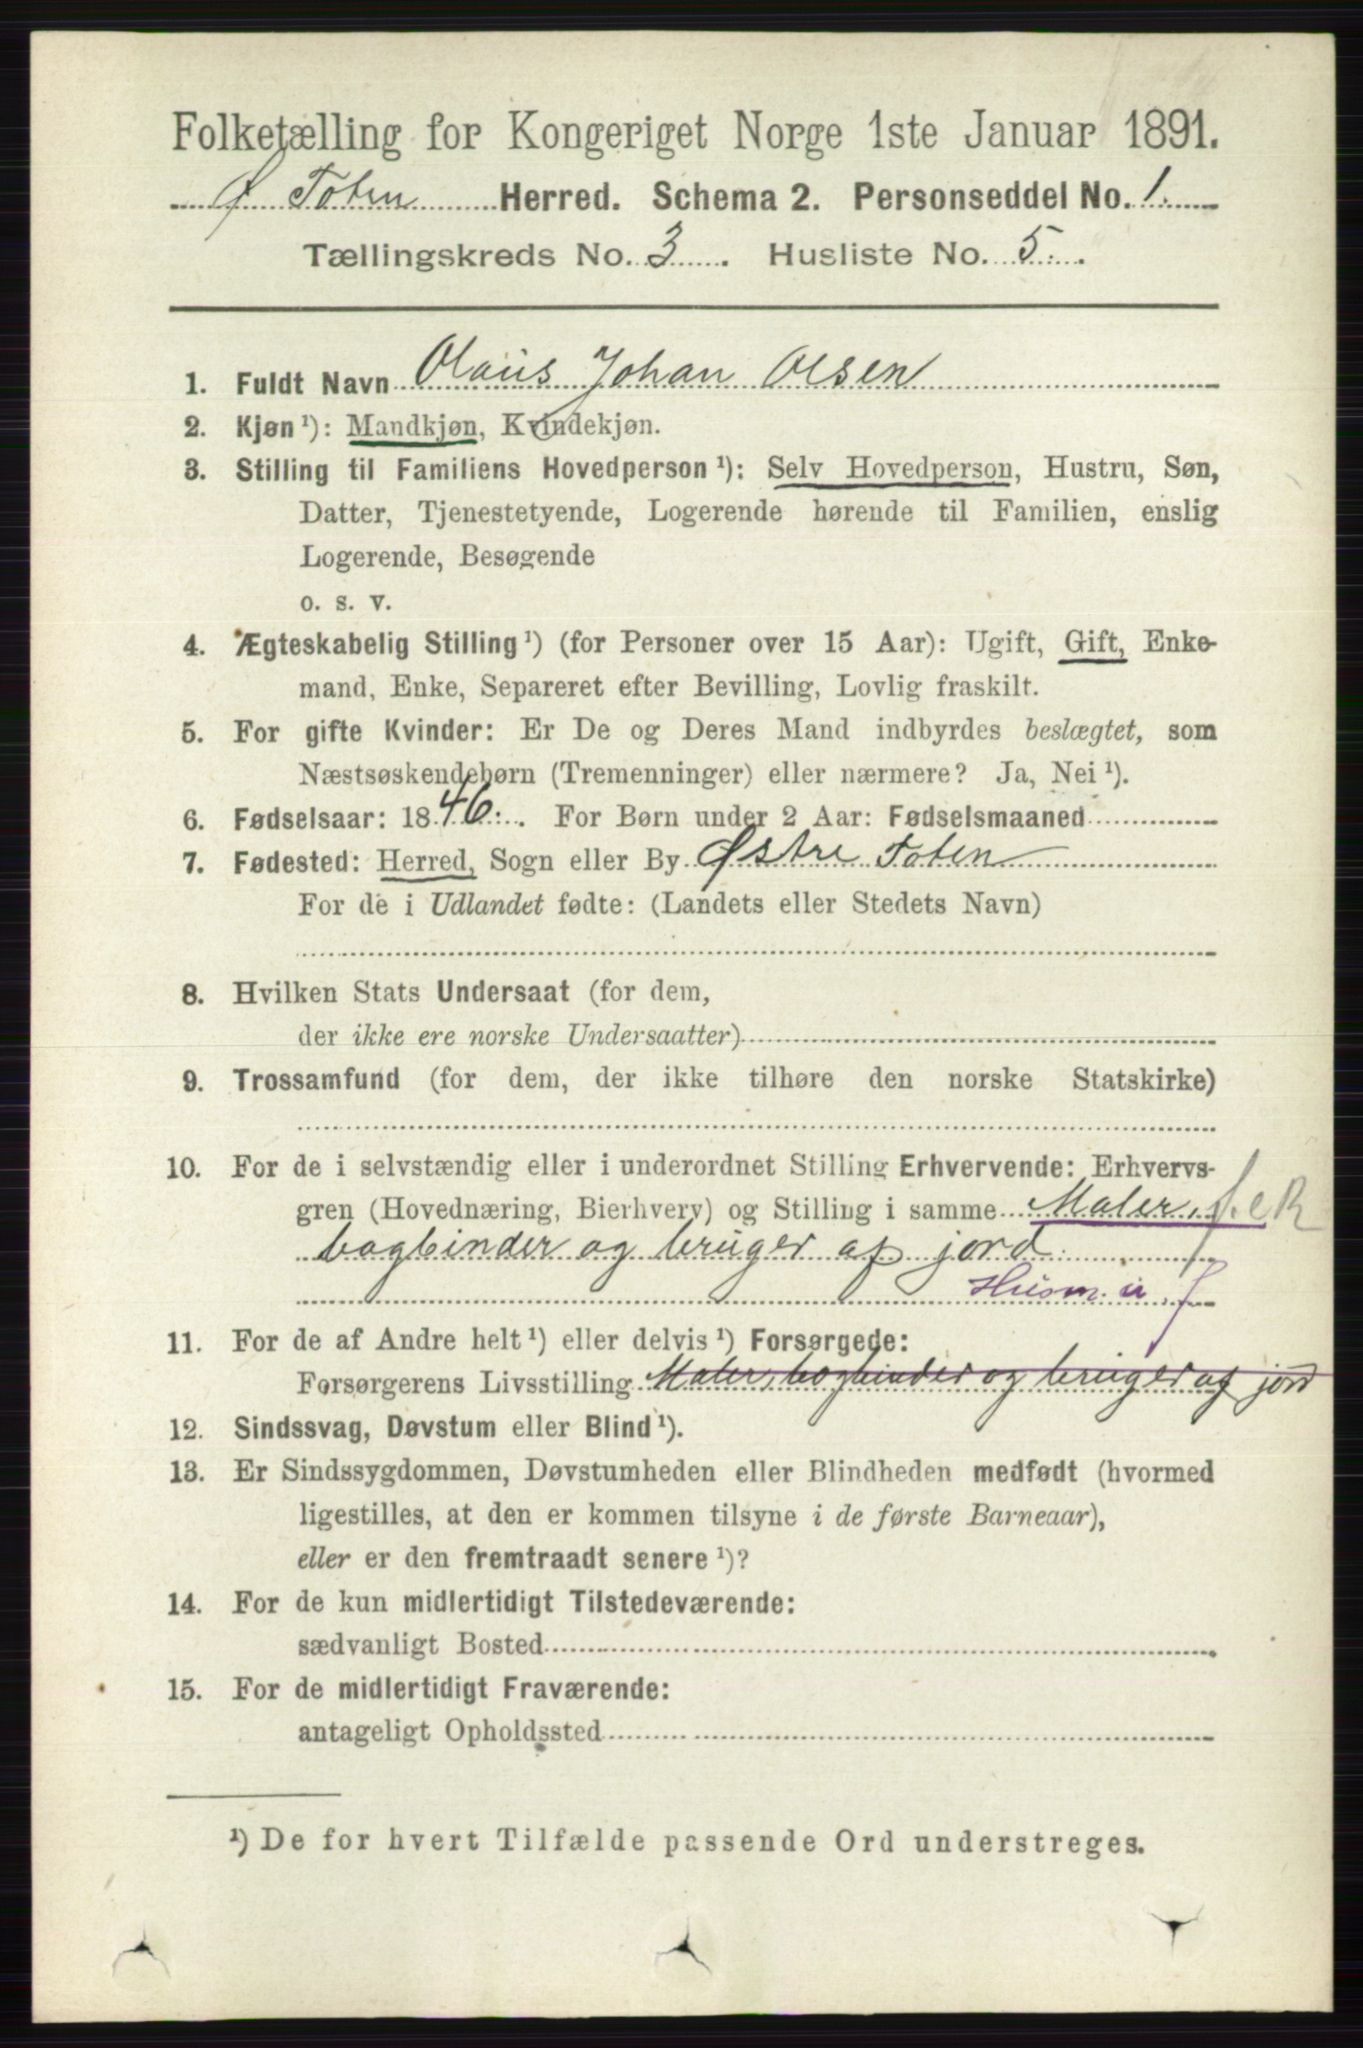 Folketælling for Kongeriget Norge 1ste Januar 1891.
Ø Toten Herred. Schema 2. Personseddel No. 1.
Tællingskreds No. 3. Husliste No. 5.
1. Fuldt Navn Olaus Johan Olsen
2. Kjøn ¹): Mandkjøn, Kvindekjøn.
3. Stilling til Familiens Hovedperson ¹): Selv Hovedperson, Hustru, Søn,
Datter, Tjenestetyende, Logerende hørende til Familien, enslig
Logerende, Besøgende
o. s. v.
4. Ægteskabelig Stilling ¹) (for Personer over 15 Aar): Ugift, Gift, Enke-
mand, Enke, Separeret efter Bevilling, Lovlig fraskilt.
5. For gifte Kvinder: Er De og Deres Mand indbyrdes beslægtet, som
Næstsøskendebørn (Tremenninger) eller nærmere? Ja, Nei ¹).
6. Fødselsaar: 1846. For Børn under 2 Aar: Fødselsmaaned
7. Fødested: Herred, Sogn eller By Østre Toten
For de i Udlandet fødte: (Landets eller Stedets Navn)
8. Hvilken Stats Undersaat (for dem,
der ikke ere norske Undersaatter)
9. Trossamfund (for dem, der ikke tilhøre den norske Statskirke)
10. For de i selvstændig eller i underordnet Stilling Erhvervende: Erhvervs-
gren (Hovednæring, Bierhverv) og Stilling i samme Maler,
bogbinder og bruger af jord.
Husm.
11. For de af Andre helt ¹) eller delvis ¹) Forsørgede:
Forsørgerens Livsstilling Maler, bogbinder og bruger af jord
12. Sindssvag, Døvstum eller Blind ¹).
13. Er Sindssygdommen, Døvstumheden eller Blindheden medfødt (hvormed
ligestilles, at den er kommen tilsyne i de første Barneaar),
eller er den fremtraadt senere ¹)?
14. For de kun midlertidigt Tilstedeværende:
sædvanligt Bosted
15. For de midlertidigt Fraværende:
antageligt Opholdssted
¹) De for hvert Tilfælde passende Ord understreges.